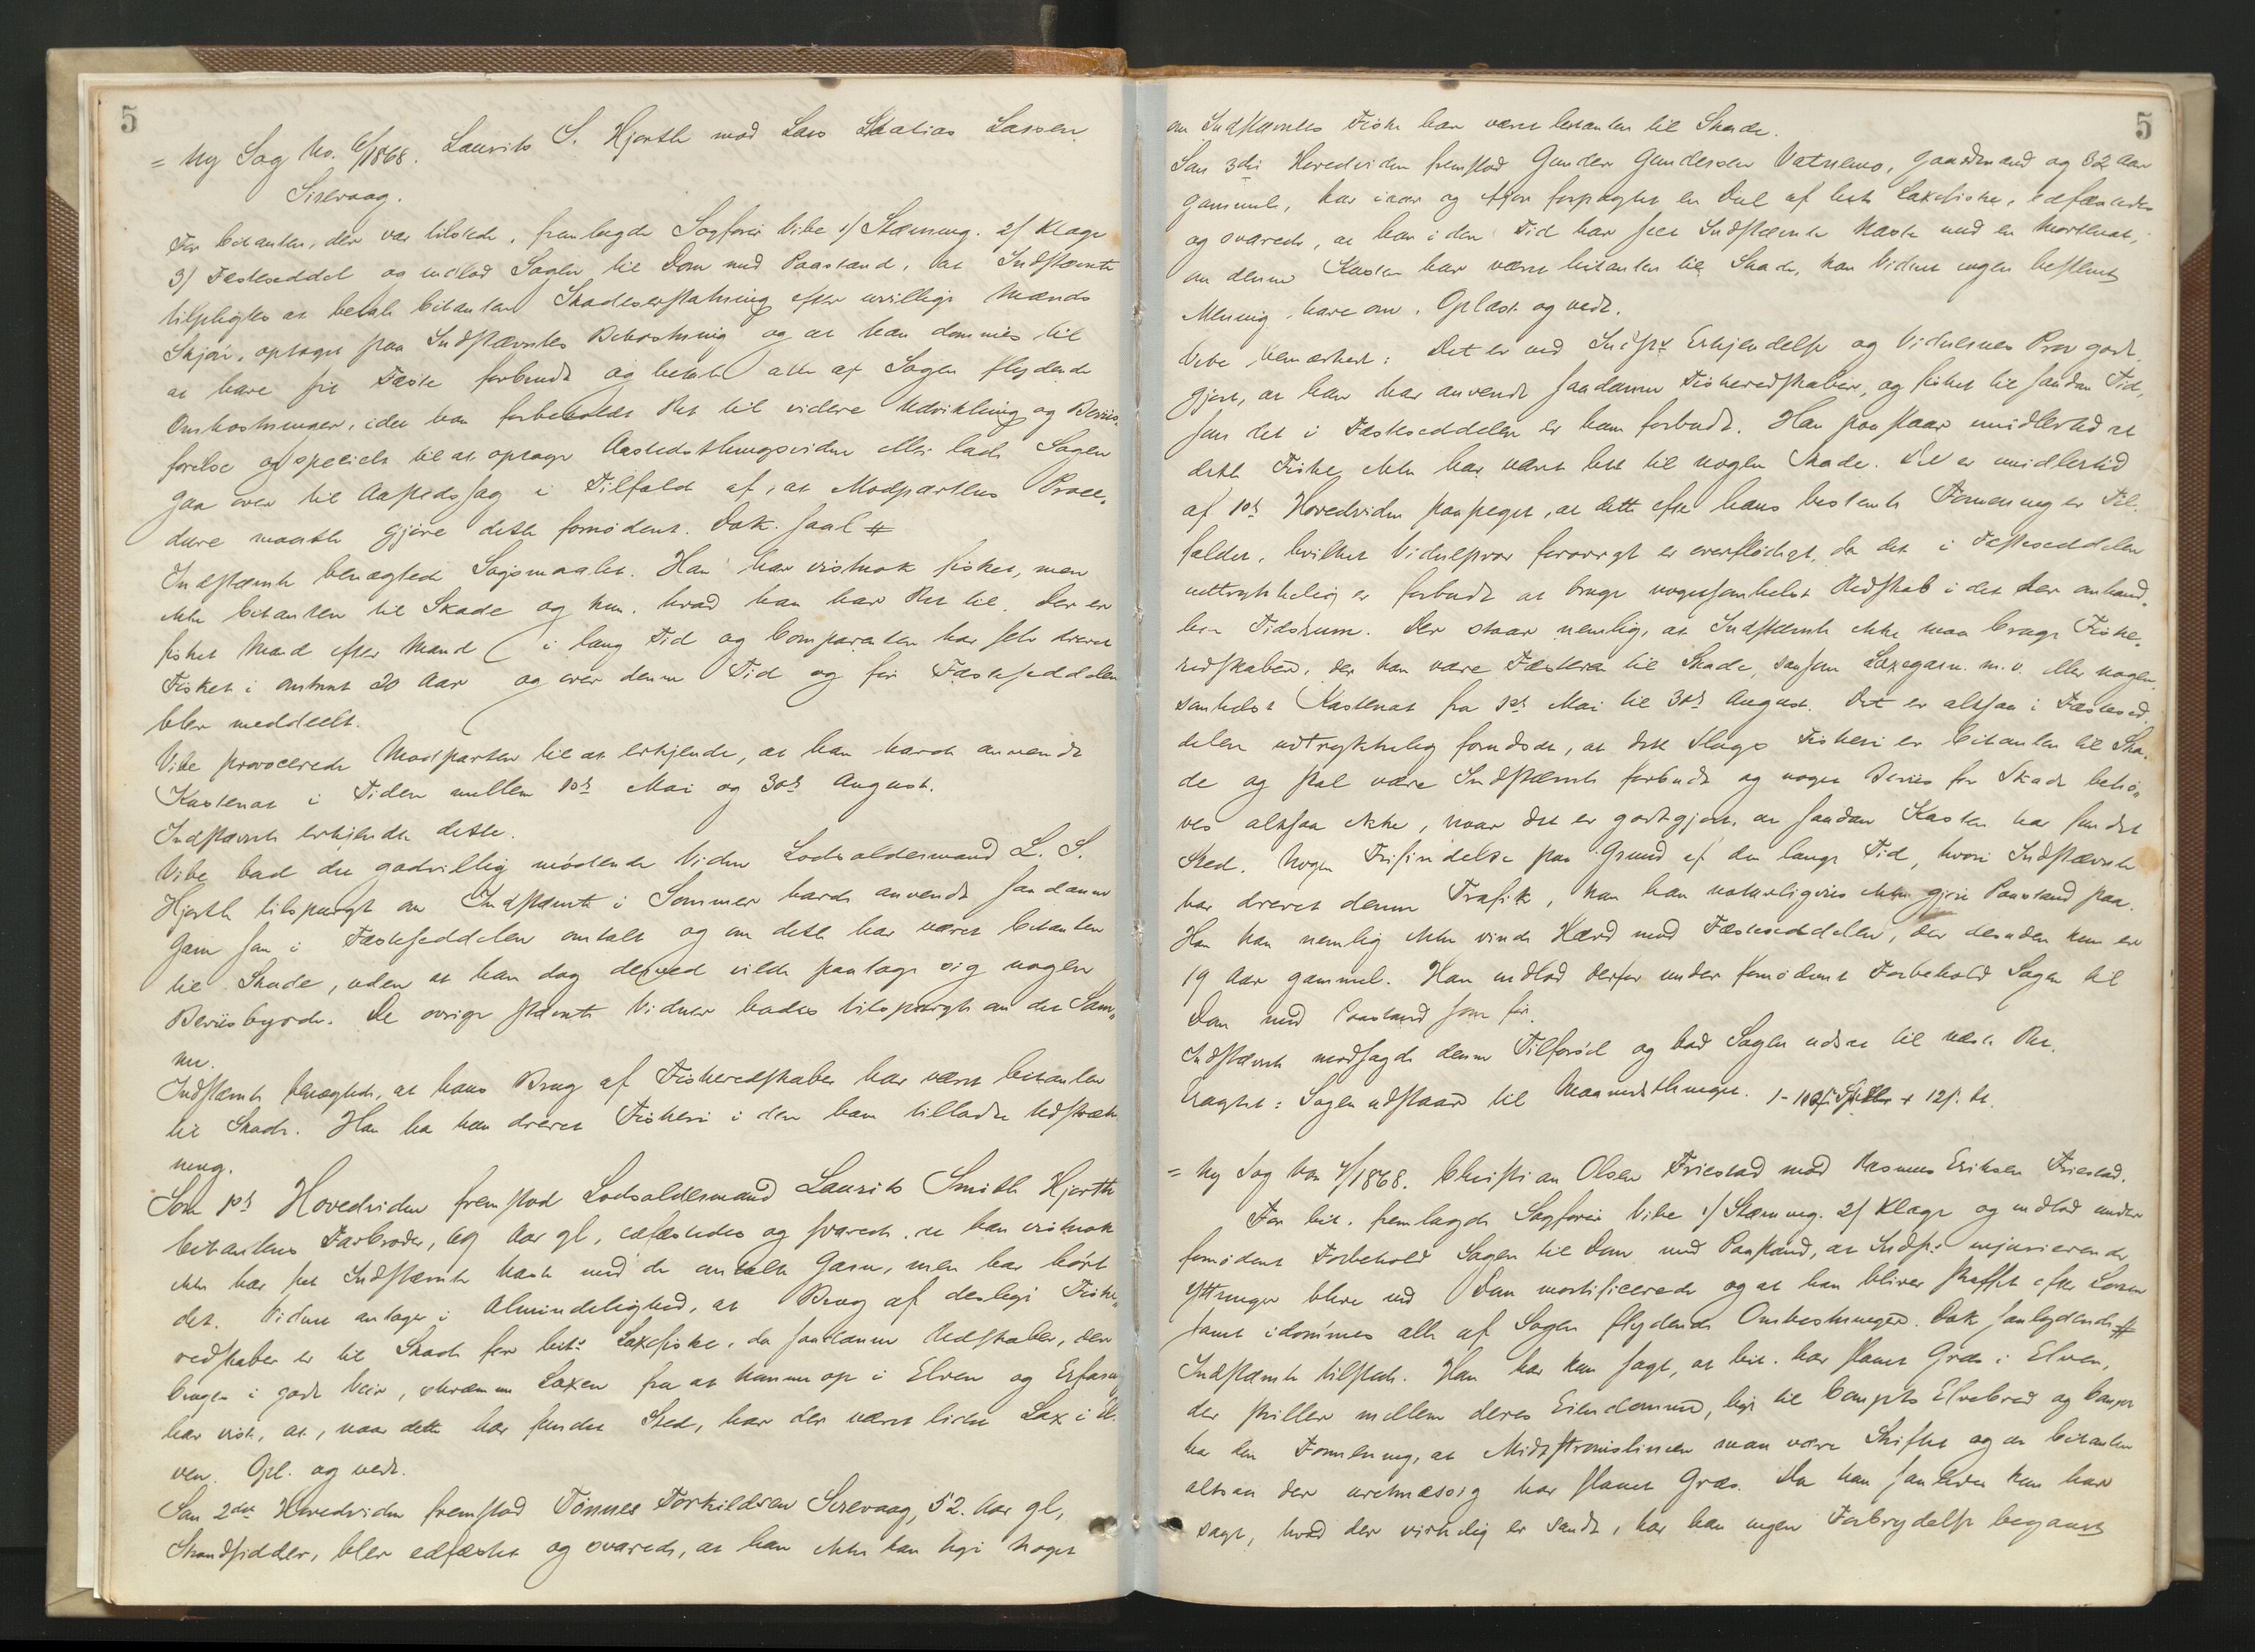 5
= Ny Sag No. 6/1868. Laurits S. Hjorth mod Lars Mathias Larsen
Sirevaag.
For Citanten, der var tilstede, fremlagde Sagfører Vibe 1/ Stævning. 2/ Klage
3/ Festeseddel og indlod Sagen til Dom med Paastand, at Indstævnte
tilpligtes at betale Citanten Skadeserstatning efter uvillige Mænds
Skjøn, optaget paa Indstævntes Bekostning og at han dømmes til
at have sit Fæste forbrudt og betale alle af Sagen flydende
Omkostninger, idet han forbeholdt Ret til videre Udvikling og Beviis-
førelse og specielt til at optage Aastedsthingsvidne eller lade Sagen
gaa over til Aastedssag i Tilfælde af, at Modpartens Proce-
dure maatte gjøre dette fornødent. Dok. saal #
Indstævnte benægtede Søgsmaalet. Han har vistnok fisket, men
ikke Citanten til Skade og kun, hvad han har Ret til. Der er
fisket Mand efter Mand i lang Tid og Comparenten har selv drevet
Fisket i omtrent 20 Aar og over denne Tid og før Festeseddelen
blev meddeelt.
Vibe provocerede Modparten til at erkjende, at han havde anvendt
Kastenot i Tiden mellem 1ste Mai og 30te August.
Indstævnte erkjendte dette.
Vibe bad det godvillig mødende Vidne Lodsoldermand L. S.
Hjorth tilspurgt om Indstævnte i Sommer havde anvendt saadanne
Garn som i Festeseddelen omtalt og om dette har været Citanten
til Skade, uden at han dog derved vilde paatage sig nogen
Beviisbyrde. De øvrige stævnte Vidner bades tilspurgte om det Sam-
me.
Indstævnte benægtede, at hans Brug af Fiskeredskaber har været Citanten
til Skade. Han har kun drevet Fiskeri i den ham tilladte Udstræk-
ning.
Som 1ste Hovedvidne fremstod Lodsoldermand Laurits Smith Hjorth
Citantens Farbroder, 69 Aar gl, edfæstedes og svarede, at han vistnok
ikke har seet Indstævnte kaste med de omtalte Garn, men har hørt
det. Vidnet antager i Almindelighed, at Brug af deslige Fiske-
redskaber er til Skade for Cit: Laxefiske, da saadanne Redskaber, der
bruges i godt Veir, skræmme Laxen fra at komme op i Elven og Erfaring
har vist, at, naar dette har fundet Sted, har der været lidet Lax i El-
ven. Opl. og vedt.
Som 2det Hovedvidne fremstod Tønnes Torkildsen Sirevaag, 52. Aar gl,
Strandsidder, blev edfæstet og svarede, at han ikke kan sige noget
5
om Indstævntes Fiske har været Citanten til Skade.
Som 3die Hovedvidne fremstod Gunder Gundersen Vatnemo, Gaardmand og 32 Aar
gammel, har iaar og ifjor forpagtet en Deel af Cits Laxefiske, edfæstedes
og svarede, at han i den Tid har seet Indstævnte kaste med en
om denne Kasten har været Citanten til Skade, kan Vidnet ingen bestemt
Mening have om. Oplæst og vedt.
Vibe bemærkede: Det er ved Indst: Erkjendelse og Vidnernes Prov godt-
gjort, at han har anvendt saadanne Fiskeredskaber, og fisket til saadan Tid,
som det i Festeseddelen er ham forbudt. Han paastaar imidlertid at
dette Fiske ikke har været Cit til nogen Skade. Det er imidlertid
af 1ste Hovedvidne paapeget, at dette efter hans bestemte Formening er Til-
fældet, hvilket Vidneprov forøvrigt er overflødigt, da det i Festeseddelen
udtrykkelig er forbudt at bruge nogetsomhelst Redskab i det der omhand-
lede Tidsrum. Der staar nemlig, at Indstævnte ikke maa bruge Fiske-
redskaber, der kan være Fæsteren til Skade, saasom Laxegarn m. v. eller nogen-
somhelst Kastenot fra 1ste Mai til 30te August. Det er altsaa i Festesed-
delen udtrykkelig forudsat, at dette Slags Fiskeri er Citanten til Ska-
de og skal være Indstævnte forbudt og noget Beviis for Skade behø-
ves altsaa ikke, naar det er godtgjort, at saadan Kasten har fundet
Sted. Nogen Frifindelse paa Grund af den lange Tid, hvori Indstævnte
har drevet denne Trafik, kan han naturligviis ikke gjøre Paastand paa.
Han kan nemlig ikke vinde Hævd mod Festeseddelen, der desuden kun er
19 Aar gammel. Han indlod derfor under fornødent Forbehold Sagen til
Dom med Paastand som før.
Indstævnte modsagde denne Tilførsel og bad Sagen udsat til næste Ret.
Eragtet: Sagen udstaar til Maanedsthinget. 1-
= Ny Sag No 7/1868. Christian Olsen Friestad mod Rasmus Eriksen Friestad.
For Cit. fremlagde Sagfører Vibe 1/ Stævning. 2/ Klage og indlod under
fornødent Forbehold Sagen til Dom med Paastand, at Indst: injurierende
Yttringer blive ved Dom mortificerede og at han bliver straffet efter Loven
samt idømmes alle af Sagen flydende Omkostninger. Dok saalydende #
Indstævnte tilstod. Han har kun sagt, at Cit. har slaaet Græs i Elven,
der skiller mellem deres Eiendomme, lige til Compts Elvebred og Compt
har den Formening, at Midtstrømslinien maa være Skiftet og at Citanten
altsaa der uretmæssig har slaaet Græs. Da han saaledes kun har
sagt, hvad der virkelig er sandt, har han ingen Forbrydelse begaaet